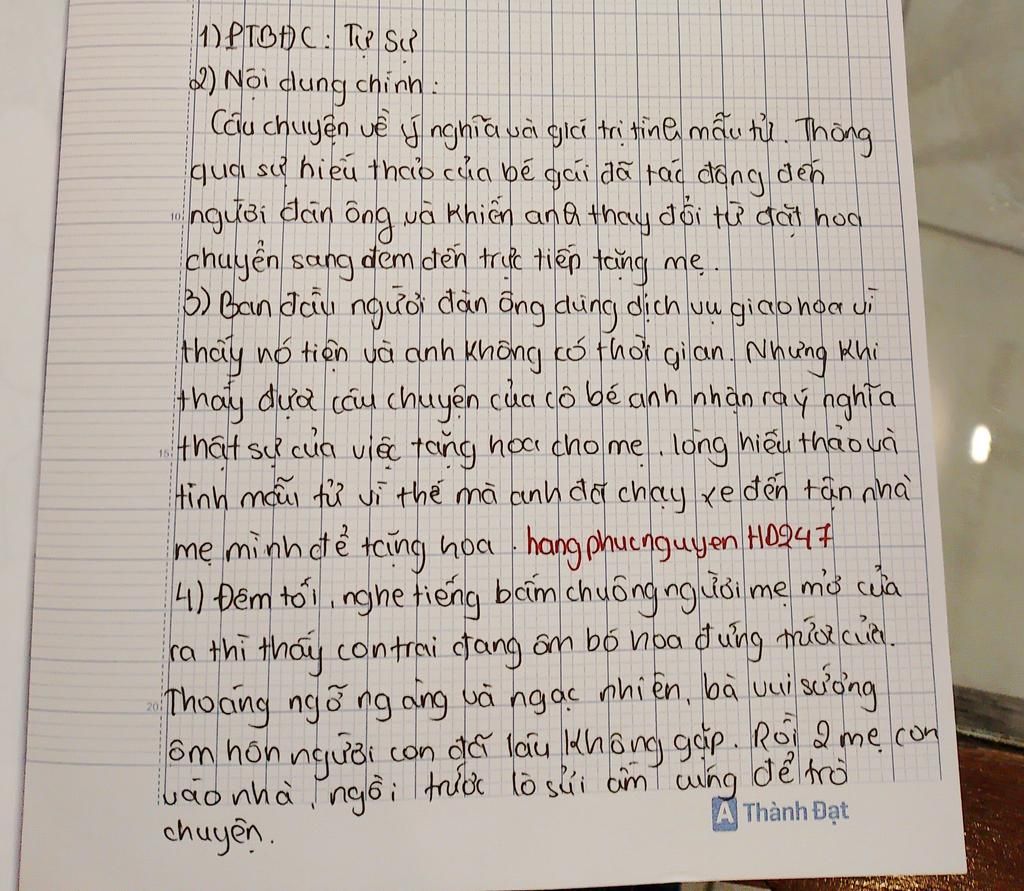 1) PTBĐC: Tự Sự
2) Nội dung chính:
Câu chuyện về ý nghĩa và giá trị tình mẫu tử. Thông
qua sự hiếu thảo của bé gái đã tác động đến
người đàn ông và khiến anh thay đổi từ đặt hoa
chuyển sang đem đến trực tiếp tặng mẹ.
3) Ban đầu người đàn ông dùng dịch vụ giao hoa vì
thấy nó tiện và anh không có thời gian. Nhưng khi
thấy được câu chuyện của cô bé anh nhận ra ý nghĩa
thật sự của việc tặng hoa cho mẹ, lòng hiếu thảo và
tình mẫu tử vì thế mà anh đã chạy xe đến tận nhà
mẹ mình để tặng hoa. hangphucnguyenHD247
4) Đêm tối, nghe tiếng bấm chuông người mẹ mở cửa
ra thì thấy con trai đang ôm bó hoa đứng trước cửa.
Thoáng ngỡ ngàng và ngạc nhiên, bà vui sướng
ôm hôn người con đã lâu không gặp. Rồi 2 mẹ con
vào nhà, ngồi trước lò sưởi ấm cúng để trò
chuyện.
10
15
20
A Thành Đạt